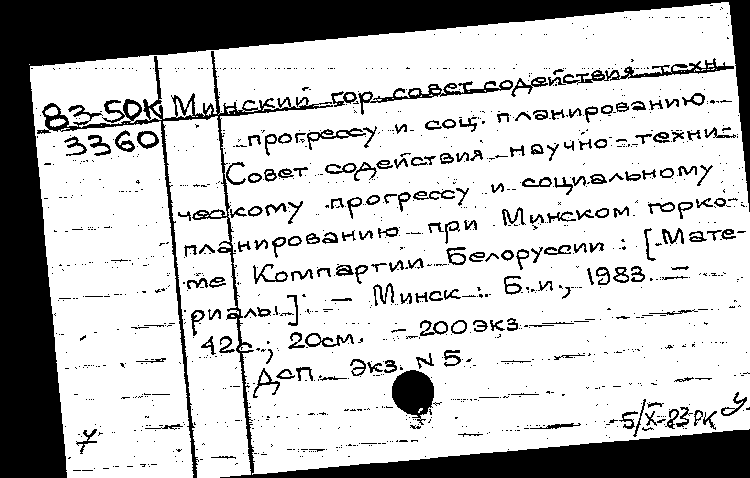 83-5DK Минский гор. совет содействия техн.
3360 прогрессу и соц. планированию.
Совет содействия научно-техни-
ческому прогрессу и социальному
планированию при Минском горко-
ме Компартии Белоруссии: [Мате-
риалы]. - Минск: Б.и., 1983. -
42с.; 20см. - 200экз
Дсп. Экз. N 5.
5/X-83